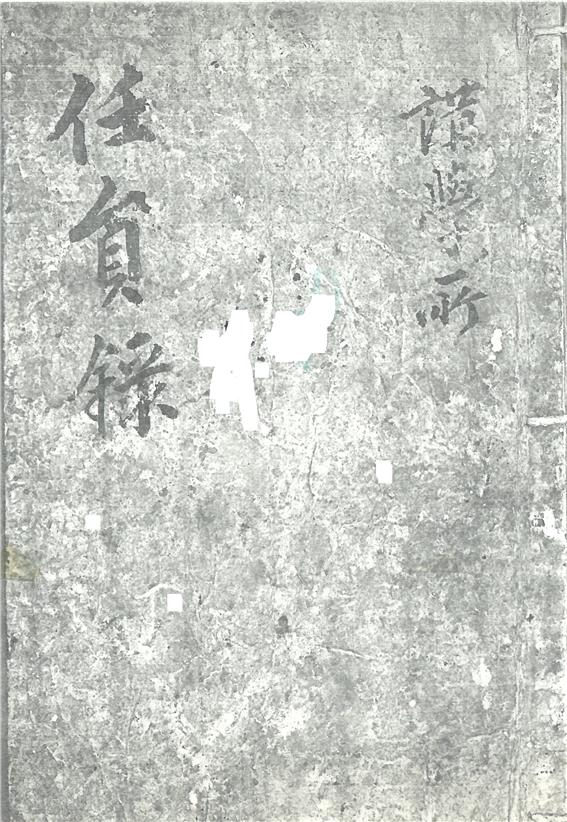 講學所
任員錄